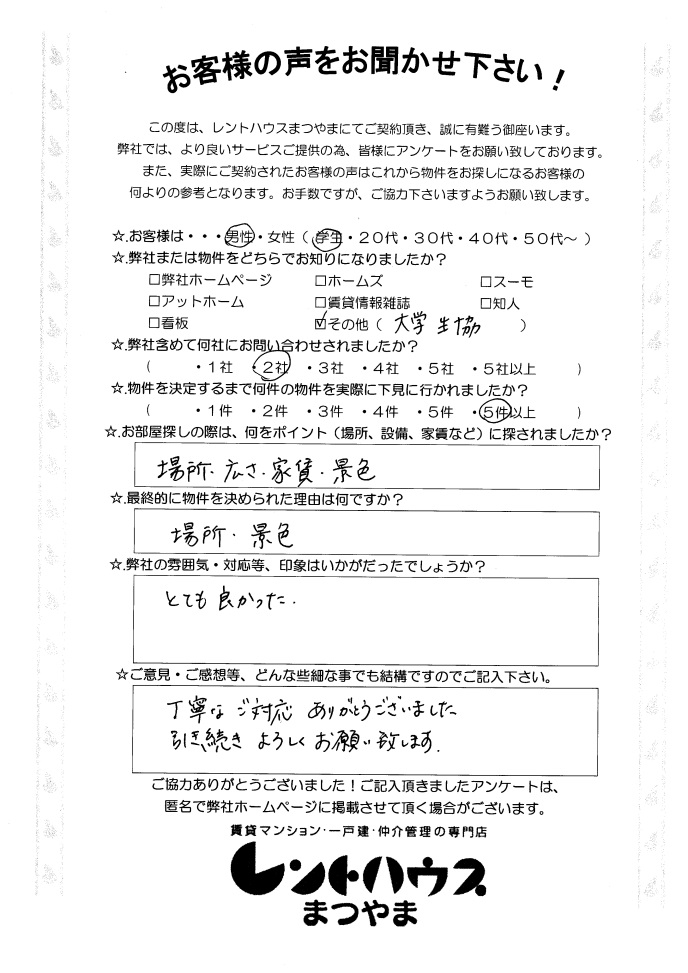 お客様の声をお聞かせ下さい！
この度は、レントハウスまつやまにてご契約頂き、誠に有難う御座います。
弊社では、より良いサービスご提供の為、皆様にアンケートをお願い致しております。
また、実際にご契約されたお客様の声はこれから物件をお探しになるお客様の
何よりの参考となります。お手数ですが、ご協力下さいますようお願い致します。
☆.お客様は・・・男性・女性（ 学生・２０代・３０代・４０代・５０代～ ）
☆.弊社または物件をどちらでお知りになりましたか？
□弊社ホームページ □ホームズ □スーモ
□アットホーム □賃貸情報雑誌 □知人
□看板 ☑その他（ 大学生協 ）
☆.弊社含めて何社にお問い合わせされましたか？
（ ・１社 ・２社 ・３社 ・４社 ・５社 ・５社以上 ）
☆.物件を決定するまで何件の物件を実際に下見に行かれましたか？
（ ・１件 ・２件 ・３件 ・４件 ・５件 ・５件以上 ）
☆.お部屋探しの際は、何をポイント（場所、設備、家賃など）に探されましたか？
場所・広さ・家賃・景色
☆.最終的に物件を決められた理由は何ですか？
場所・景色
☆.弊社の雰囲気・対応等、印象はいかがだったでしょうか？
とても良かった.
☆ご意見・ご感想等、どんな些細な事でも結構ですのでご記入下さい。
丁寧なご対応 ありがとうございました
引き続き よろしくお願い致します.
ご協力ありがとうございました！ご記入頂きましたアンケートは、
匿名で弊社ホームページに掲載させて頂く場合がございます。
賃貸マンション・一戸建・仲介管理の専門店
レントハウス
まつやま